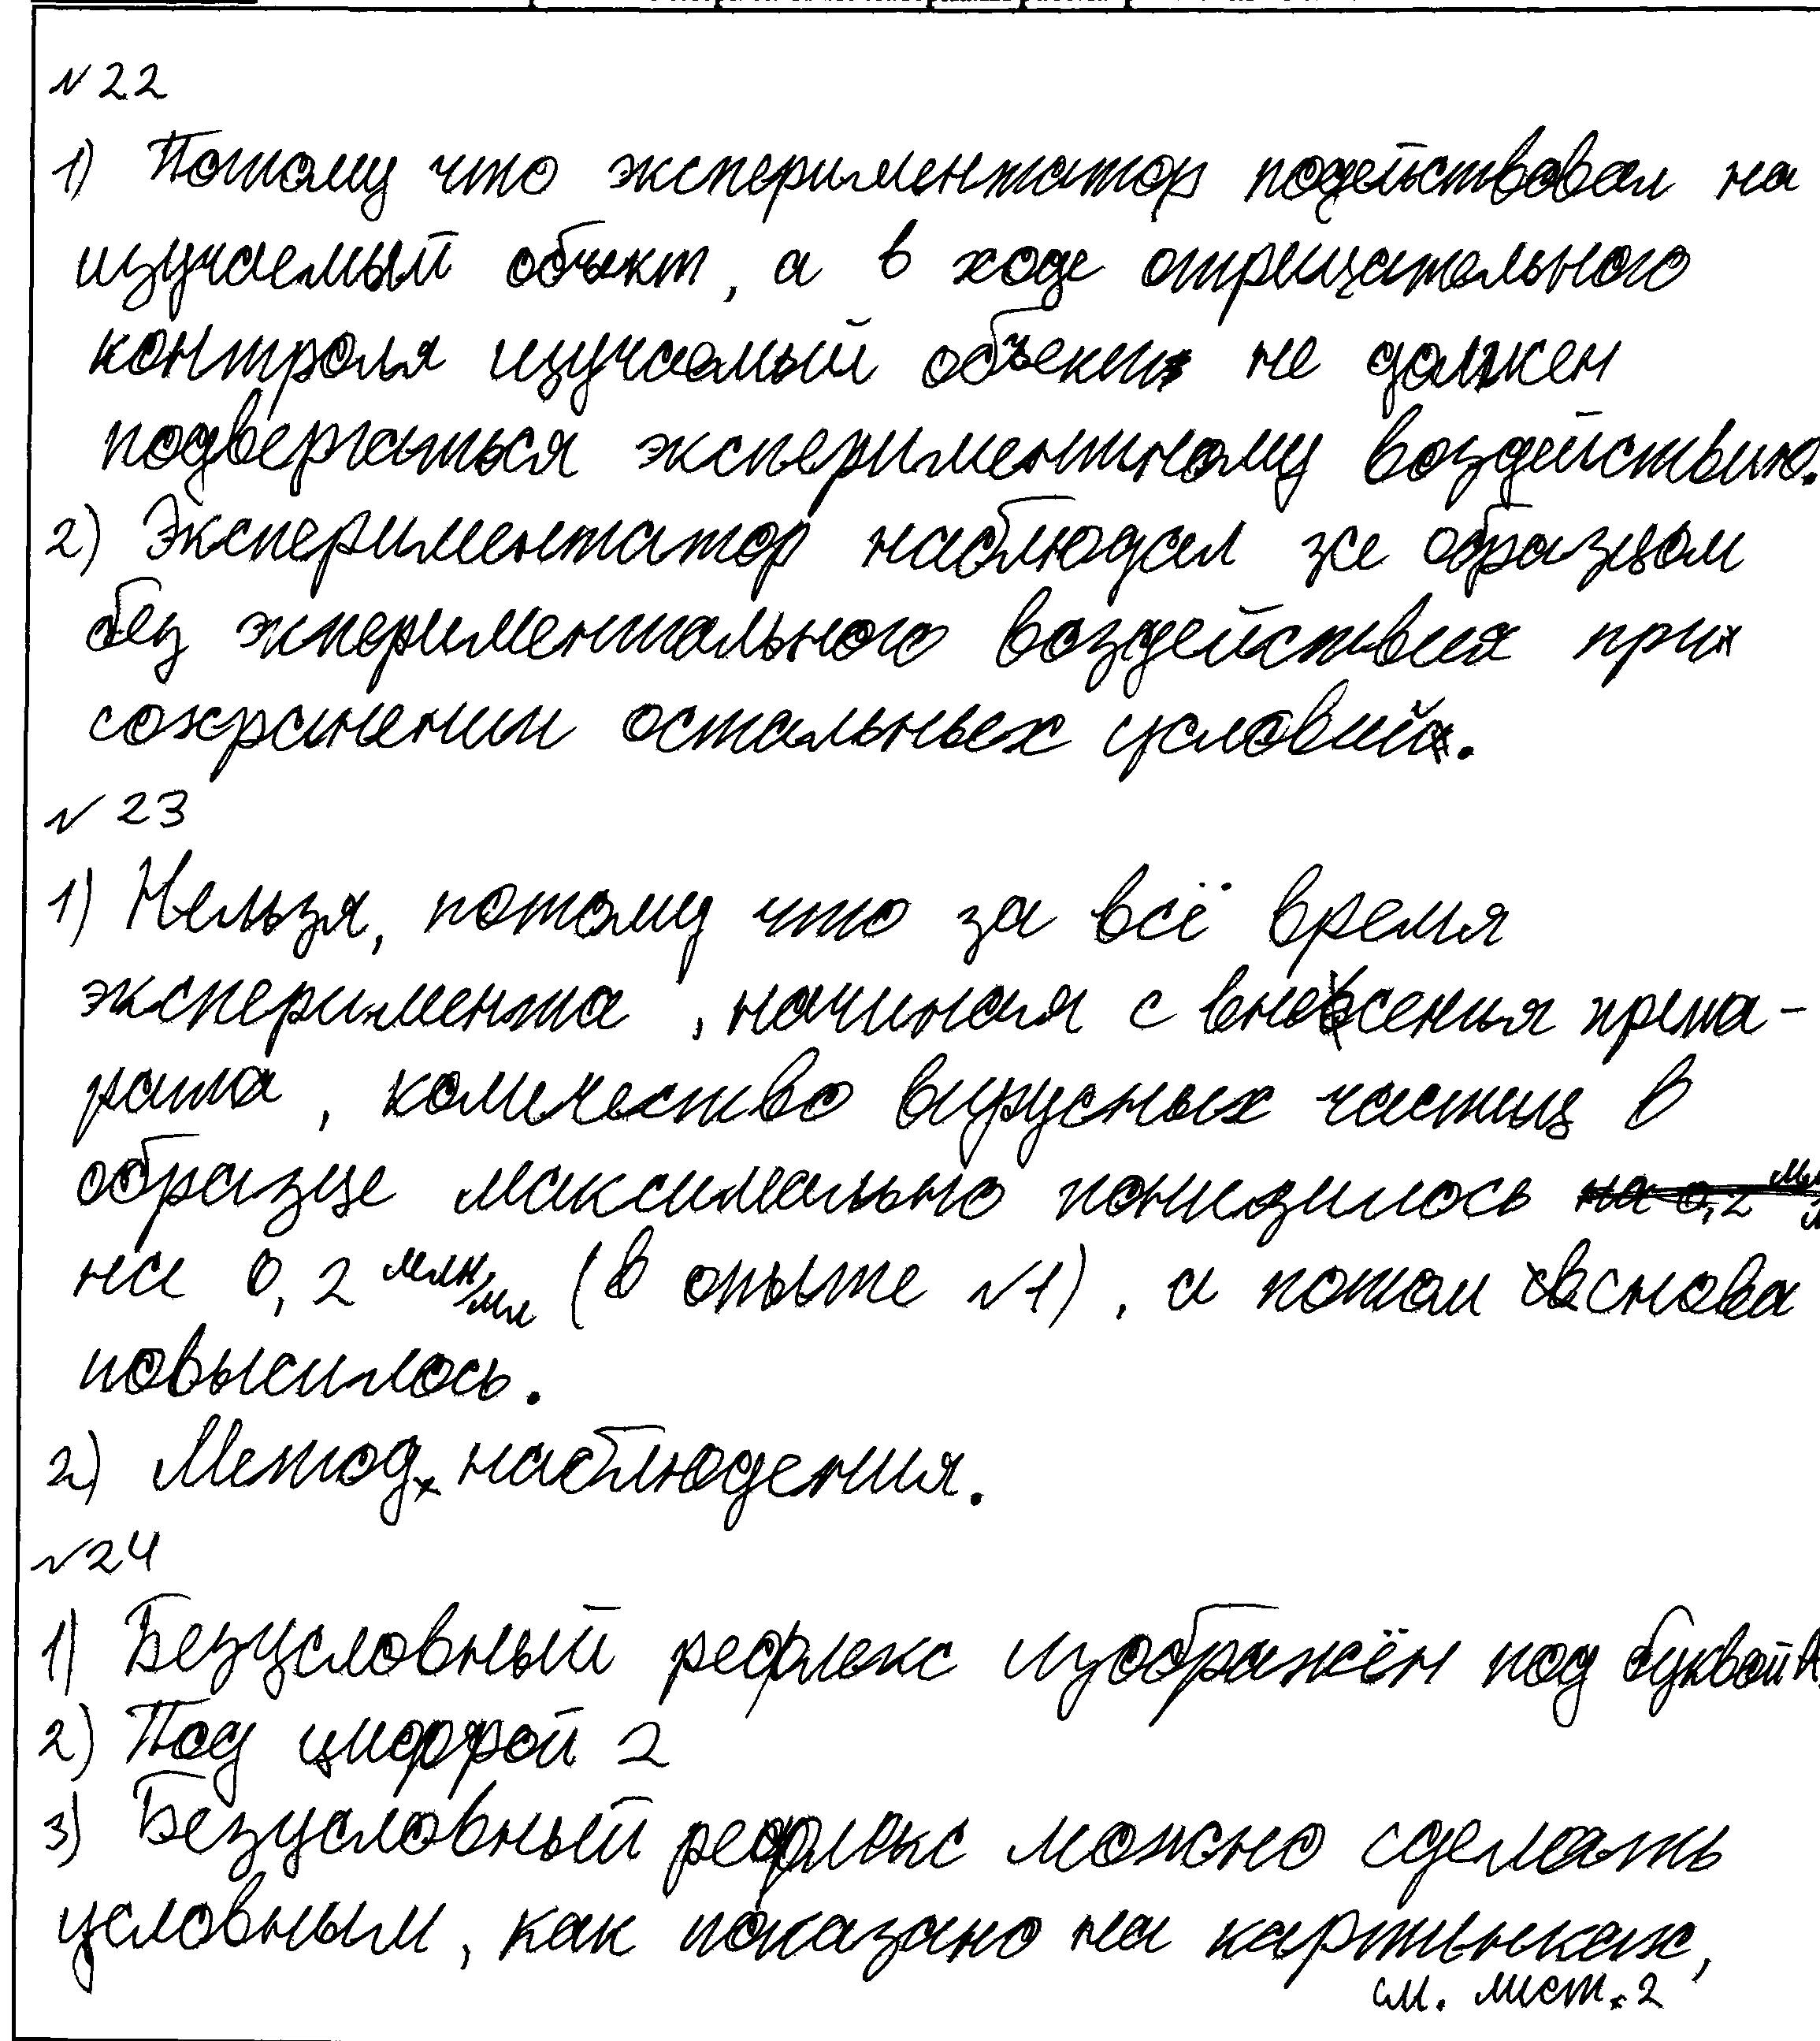 № 22
1) Потому что экспериментатор подействовал на
изучаемый объект, а в ходе отрицательного
контроля изучаемый объект не должен
подвергаться экспериментному воздействию.
2) Экспериментатор наблюдал же образцом
без экпериментального воздействия при
сохранении остальных условий.
№ 23
1) Нельзя, потому что за всё время
эксперимента, начиная с внесения препа-
рата, количество вирусных частиц в
образце максимально понизилось на 0,2
на 0,2 млн/мл (в опыте №1), а потом снова
повысилось.
2) Метод наблюдения.
№24
1) Безусловный рефлекс изображён под буквой А.
2) Под цифрой 2
3) Безусловный рефлекс можно сделать
условным, как показано на картинках,
см. лист. 2